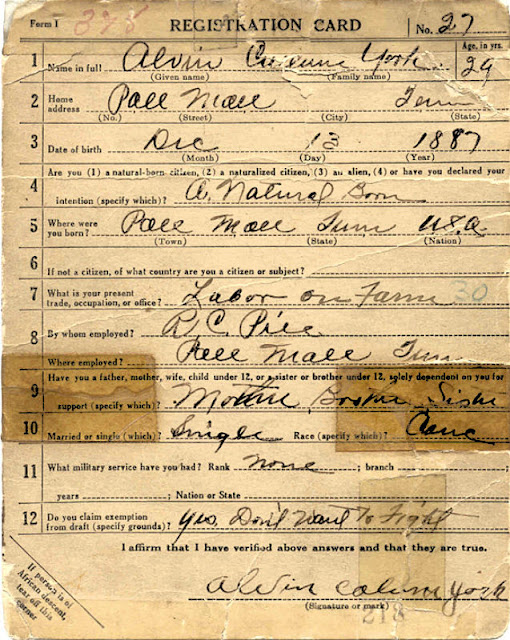 Form 1 378 REGISTRATION CARD No. 27
1 Name in full Alvin York Age, in yrs. 29
(Given name) (Family name)
2 Home address Pall Mall Tenn
(No.) (Street) (City) (State)
3 Date of birth Dec 13 1887
(Month) (Day) (Year)
Are you (1) a natural-born citizen, (2) a naturalized citizen, (3) an alien, (4) or have you declared your
4 intention (specify which)? A. Natural Born
5 Where were you born? Pall Mall Tenn U.S.A.
(Town) (State) (Nation)
6 If not a citizen, of what country are you a citizen or subject?
7 What is your present trade, occupation, or office? Labor on Farm 30
8 By whom employed? R. C. Pile
Where employed? Pall Mall Tenn
Have you a father, mother, wife, child under 12, or a sister or brother under 12, solely dependent on you for
9 support (specify which)? Mother, Brother, Sister
10 Married or single (which)? Single Race (specify which)?
11 What military service have you had? Rank none ; branch ;
years ; Nation or State
12 Do you claim exemption from draft (specify grounds)? Yes. Don't Want To Fight
I affirm that I have verified above answers and that they are true.
Alvin York
(Signature or mark)
218
If person is of
African descent,
tear off this
corner